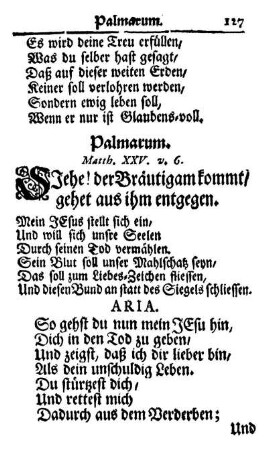 Palmarum. 127
Es wird deine Treu erfüllen/
Was du selber hast gesagt/
Daß auf dieser weiten Erden/
Keiner soll verlohren werden/
Sondern ewig leben soll/
Wenn er nur ist Glaubens-voll.
Palmarum.
Matth. XXV. v. 6.
SIehe! der Bräutigam kommt/
gehet aus ihm entgegen.
Mein JEsus stellt sich ein/
Und will sich unsre Seelen
Durch seinen Tod vermählen.
Sein Blut soll unser Mahlschatz seyn/
Das soll zum Liebes-Zeichen fliessen/
Und diesen Bund an statt des Siegels schliessen.
ARIA.
So gehst du nun mein JEsu hin/
Dich in den Tod zu geben/
Und zeigst/ daß ich dir lieber bin/
Als dein unschuldig Leben.
Du stürtzest dich/
Und rettest mich
Dadurch aus dem Verderben;
Und